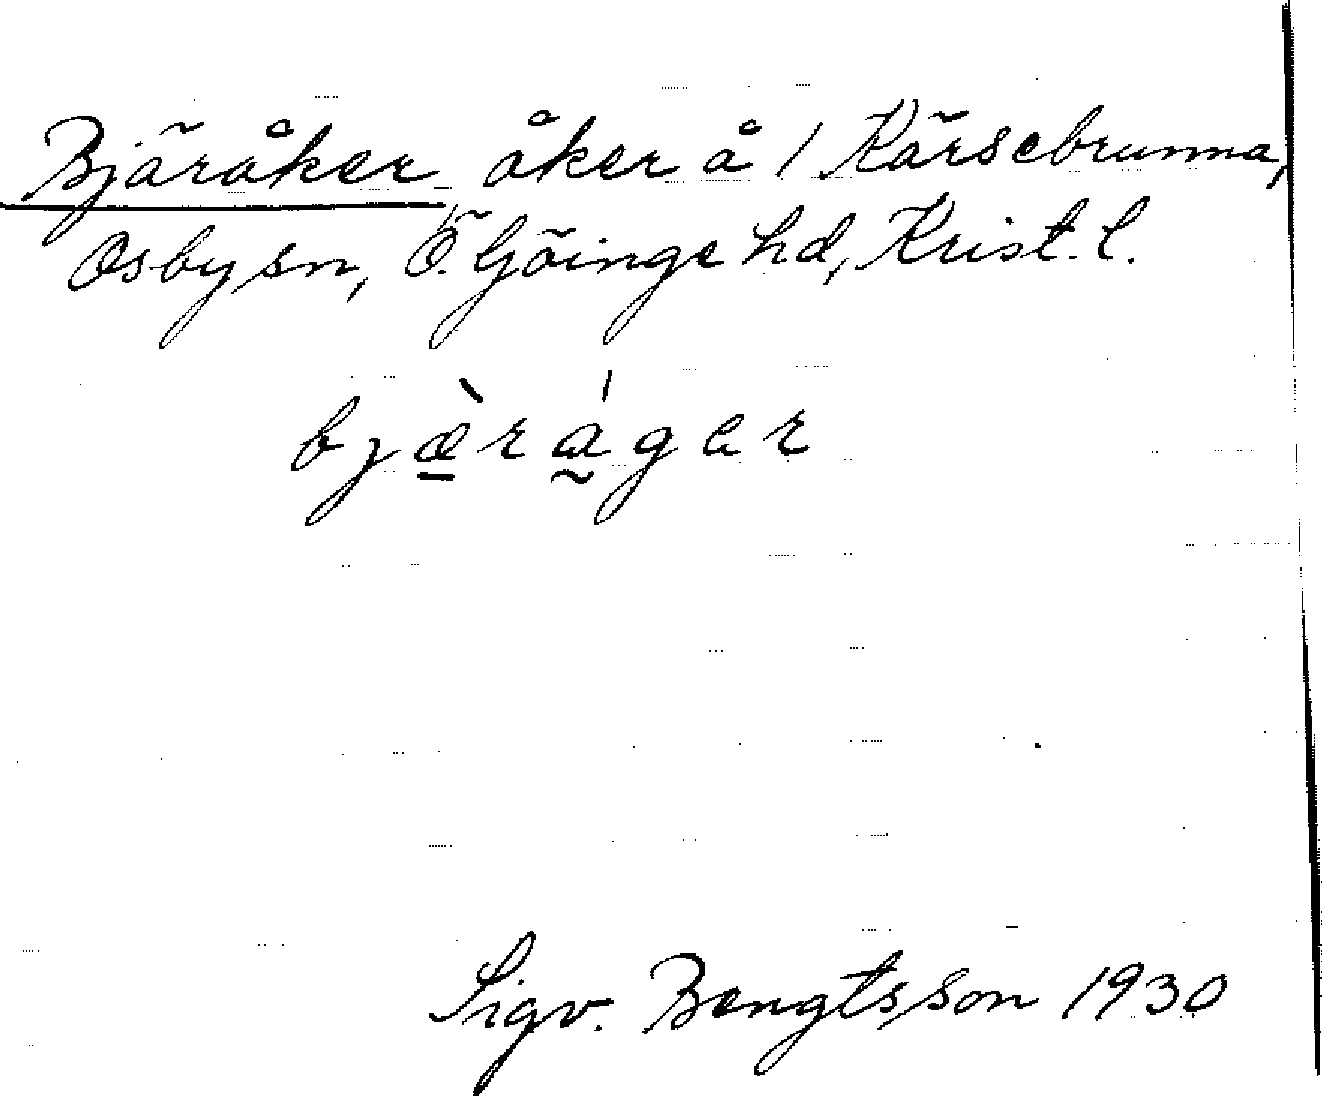 Bjäråker åker å 1 Kärsebrunna,
Osby sn, Ö. Göinge hd, Krist. l.
bjæ̱̀rá̰ger
Sigv. Bengtsson 1930